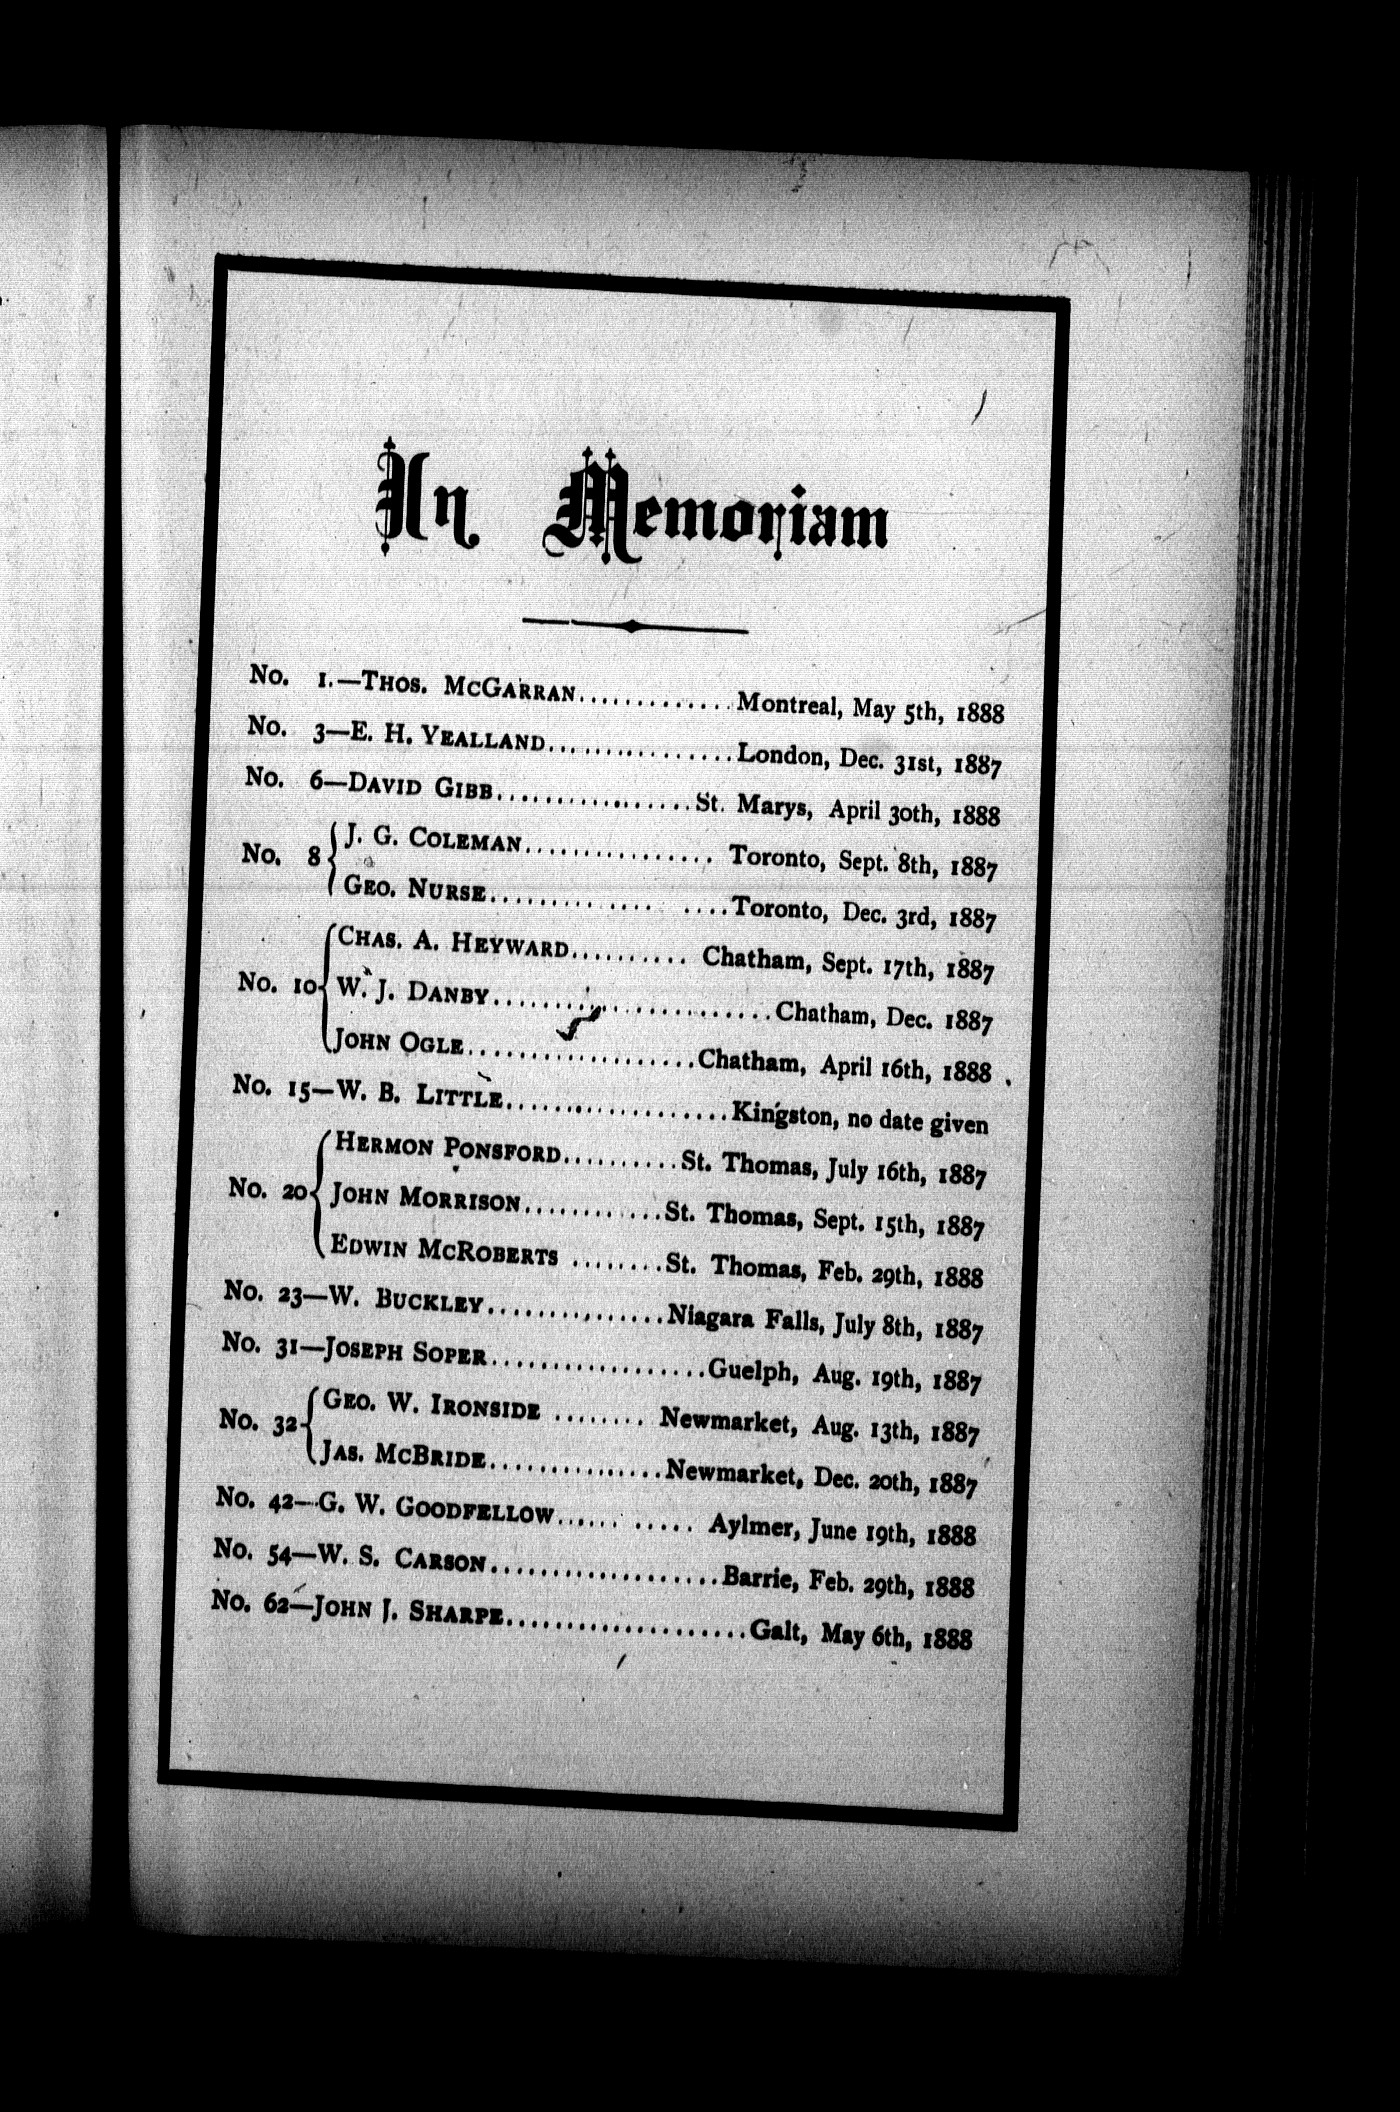 In Memoriam
No. 1.—Thos. McGarran............Montreal, May 5th, 1888
No. 3—E. H. Yealland................London, Dec. 31st, 1887
No. 6—David Gibb.................St. Marys, April 30th, 1888
No. 8 { J. G. Coleman................ Toronto, Sept. 8th, 1887
Geo. Nurse......... .... ....Toronto, Dec. 3rd, 1887
No. 10 { Chas. A. Heyward.......... Chatham, Sept. 17th, 1887
W. J. Danby........................Chatham, Dec. 1887
John Ogle...................Chatham, April 16th, 1888
No. 15—W. B. Little...................Kingston, no date given
No. 20 { Hermon Ponsford..........St. Thomas, July 16th, 1887
John Morrison............St. Thomas, Sept. 15th, 1887
Edwin McRoberts ........St. Thomas, Feb. 29th, 1888
No. 23—W. Buckley...............Niagara Falls, July 8th, 1887
No. 31—Joseph Soper..................Guelph, Aug. 19th, 1887
No. 32 { Geo. W. Ironside ........ Newmarket, Aug. 13th, 1887
Jas. McBride...............Newmarket, Dec. 20th, 1887
No. 42—G. W. Goodfellow...... ..... Aylmer, June 19th, 1888
No. 54—W. S. Carson...................Barrie, Feb. 29th, 1888
No. 62—John J. Sharpe....................Galt, May 6th, 1888